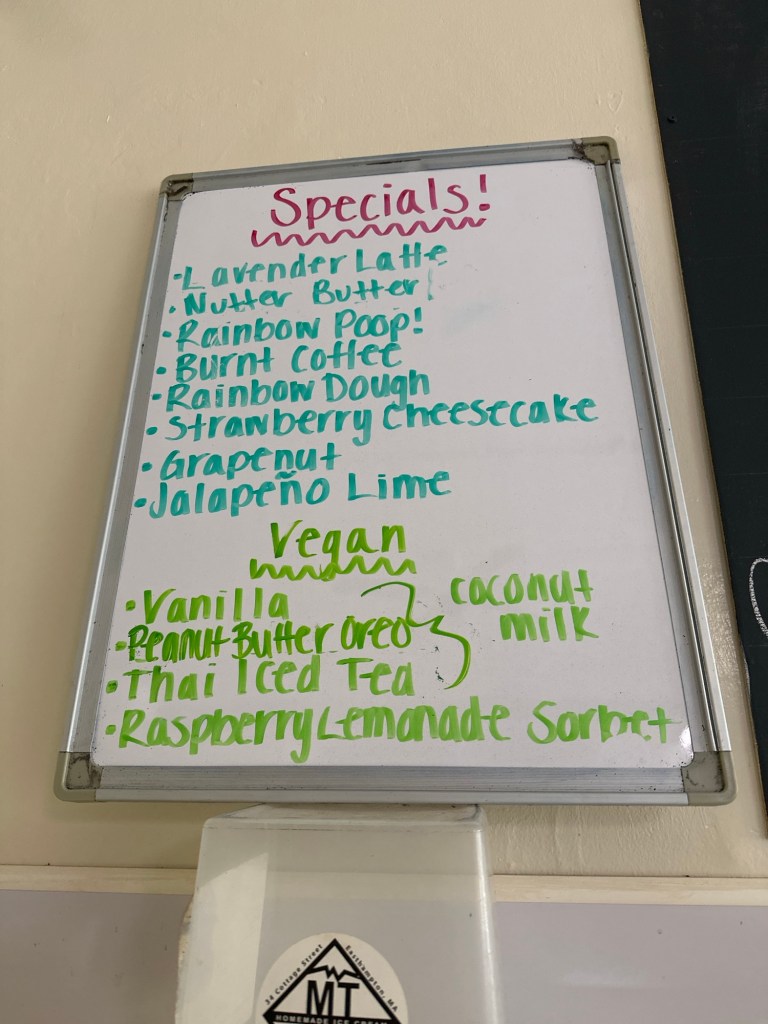 Specials!
• Lavender Latte
• Nutter Butter!
• Rainbow Poop!
• Burnt Coffee
• Rainbow Dough
• Strawberry Cheesecake
• Grapenut
• Jalapeño Lime
Vegan
• Vanilla
• Peanut Butter Oreo
• Thai Iced Tea
coconut
milk
• Raspberry Lemonade Sorbet
34 Cottage Street
Easthampton, MA
MT
HOMEMADE ICE CREAM